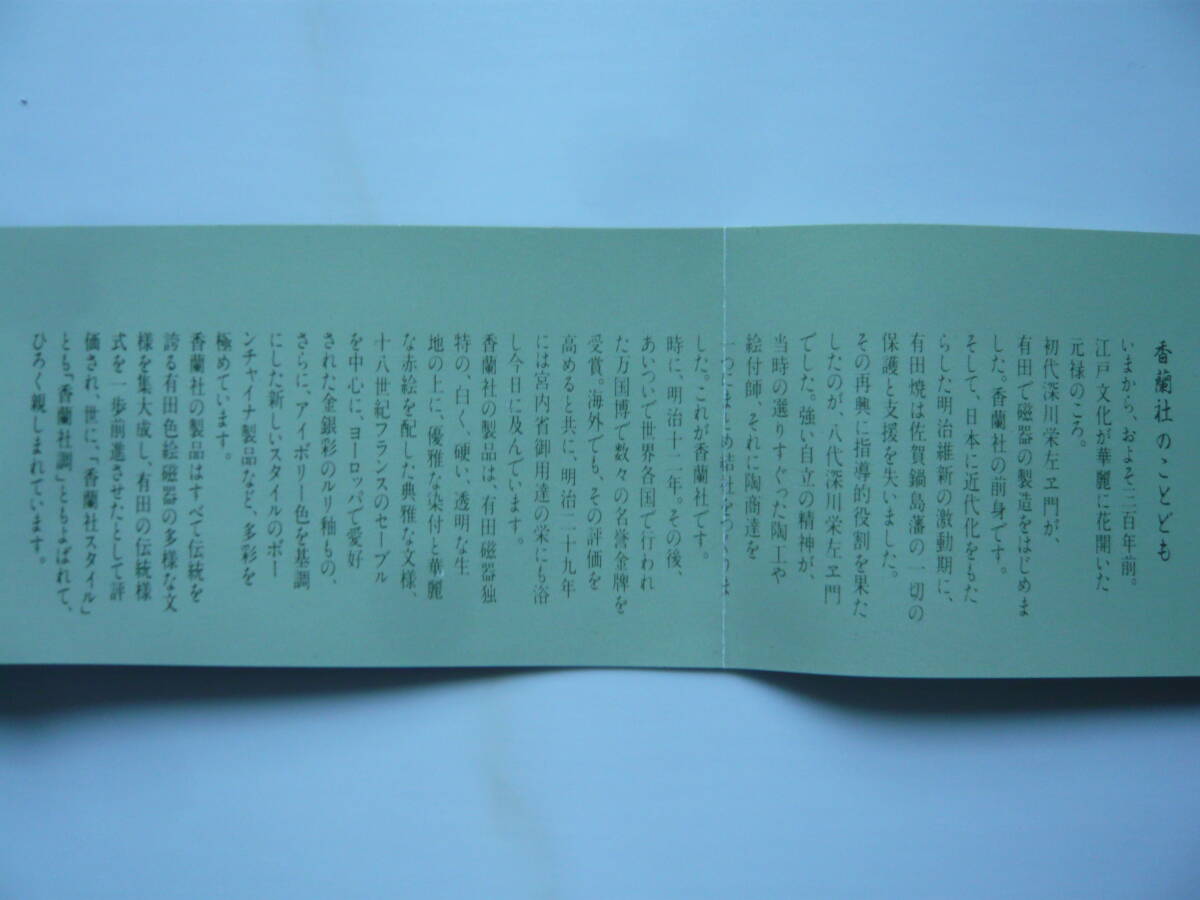 香蘭社のことども
いまから、およそ三百年前。
江戸文化が華麗に花開いた
元禄のころ。
初代深川栄左ヱ門が、
有田で磁器の製造をはじめま
した。香蘭社の前身です。
そして、日本に近代化をもた
らした明治維新の激動期に、
有田焼は佐賀鍋島藩の一切の
保護と支援を失いました。
その再興に指導的役割を果た
したのが、八代深川栄左ヱ門
でした。強い自立の精神が、
当時の選りすぐった陶工や
絵付師、それに陶商達を
一つにまとめ結社をつくりま
した。これが香蘭社です。
時に、明治十二年。その後、
あいついで世界各国で行われ
た万国博で数々の名誉金牌を
受賞。海外でも、その評価を
高めると共に、明治二十九年
には宮内省御用達の栄にも浴
し今日に及んでいます。
香蘭社の製品は、有田磁器独
特の、白く、硬い、透明な生
地の上に、優雅な染付と華麗
な赤絵を配した典雅な文様、
十八世紀フランスのセーブル
を中心に、ヨーロッパで愛好
された金銀彩のルリ釉もの、
さらに、アイボリー色を基調
にした新しいスタイルのボー
ンチャイナ製品など、多彩を
極めています。
香蘭社の製品はすべて伝統を
誇る有田色絵磁器の多様な文
様を集大成し、有田の伝統様
式を一歩前進させたとして評
価され、世に、「香蘭社スタイル」
とも「香蘭社調」ともよばれて、
ひろく親しまれています。